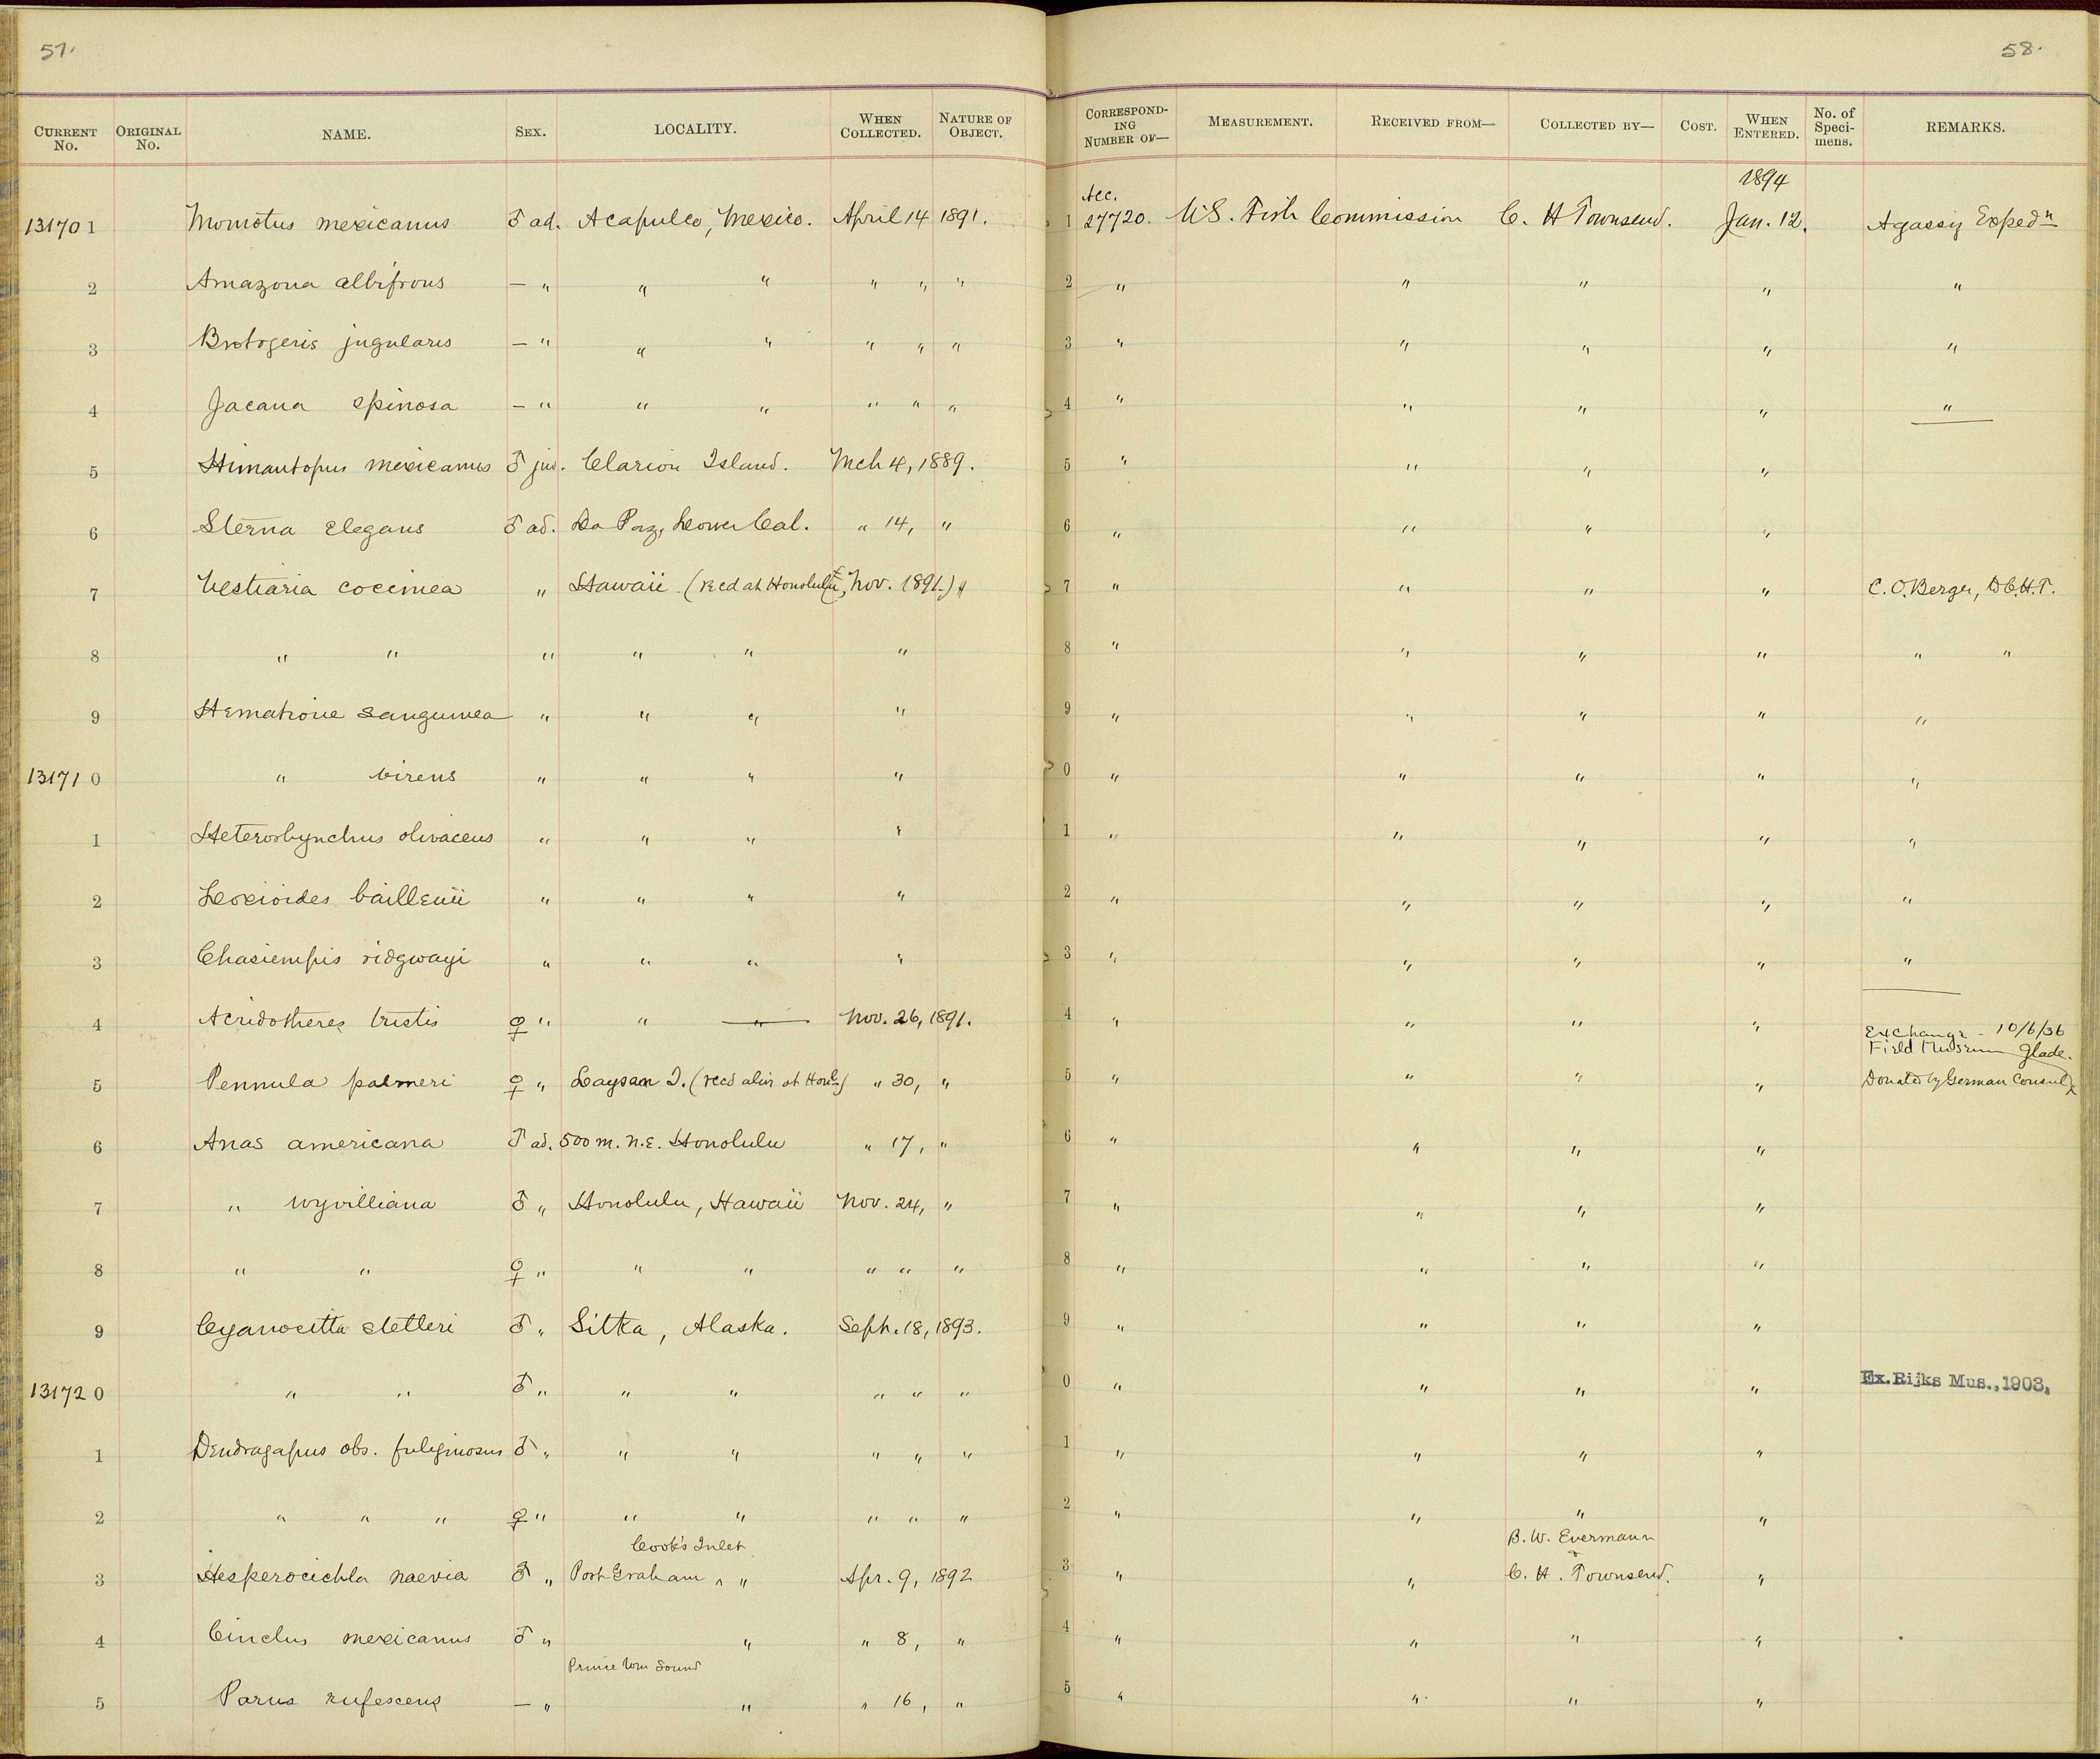 57.
CURRENT No. ORIGINAL No. NAME. SEX. LOCALITY. WHEN COLLECTED. NATURE OF OBJECT.
131701 Momotus mexicanus ♂ ad. Acapulco, Mexico. April 14 1891.
2 Amazona albifrons — " " " " " "
3 Brotogeris jugularis — " " " " " "
4 Jacana spinosa — " " " " " "
5 Himantopus mexicanus ♂ juv. Clarion Island. Mch 4, 1889.
6 Sterna elegans ♂ ad. La Paz, Lower Cal. " 14, "
7 Vestiaria coccinea " Hawaii (Recd at Honolulu, Nov. 1891.)
8 " " " " " "
9 Hematione sanguinea " " " "
131710 " virens " " " "
1 Heterorhynchus olivaceus " " " "
2 Loxioides bailleuii " " " "
3 Chasiempis ridgwayi " " " "
4 Acridotheres tristis ♀ " " " Nov. 26, 1891.
5 Pennula palmeri ♀ " Laysan I. (recd alive at Honl.) " 30, "
6 Anas americana ♂ ad. 500 m. N.E. Honolulu " 17, "
7 " wyvilliana ♂ " Honolulu, Hawaii Nov. 24, "
8 " " ♀ " " " " " "
9 Cyanocitta stelleri ♂ " Sitka, Alaska. Sept. 18, 1893.
131720 " " ♂ " " " " " "
1 Dendragapus obs. fuliginosus ♂ " " " " " "
2 " " " ♀ " " " " " "
Cook's Inlet
3 Hesperocichla naevia ♂ " Port Graham " " Apr. 9, 1892
4 Cinclus mexicanus ♂ " " " 8, "
Prince Wm Sound
5 Parus rufescens — " " " 16, "
58.
CORRESPONDING NUMBER OF— MEASUREMENT. RECEIVED FROM— COLLECTED BY— COST. WHEN ENTERED. No. of Specimens. REMARKS.
Acc. 1894
1 27720. U.S. Fish Commission C. H Townsend. Jan. 12. Agassiz Exped<sup>n</sup>
2 " " " " "
3 " " " " "
4 " " " " "
5 " " " "
6 " " " "
7 " " " " C. O. Berger, to C.H.T.
8 " " " " " "
9 " " " " "
0 " " " " "
1 " " " " "
2 " " " " "
3 " " " " "
4 " " " "
Exchange - 10/6/36
Field Museum
5 " " " " Donated by German Consul Glade.
6 " " " "
7 " " " "
8 " " " "
9 " " " "
0 " " " " Ex. Rijks Mus., 1903.
1 " " " "
2 " " " "
B. W. Evermann
&
3 " " C. H. Townsend. "
4 " " " "
5 " " " "